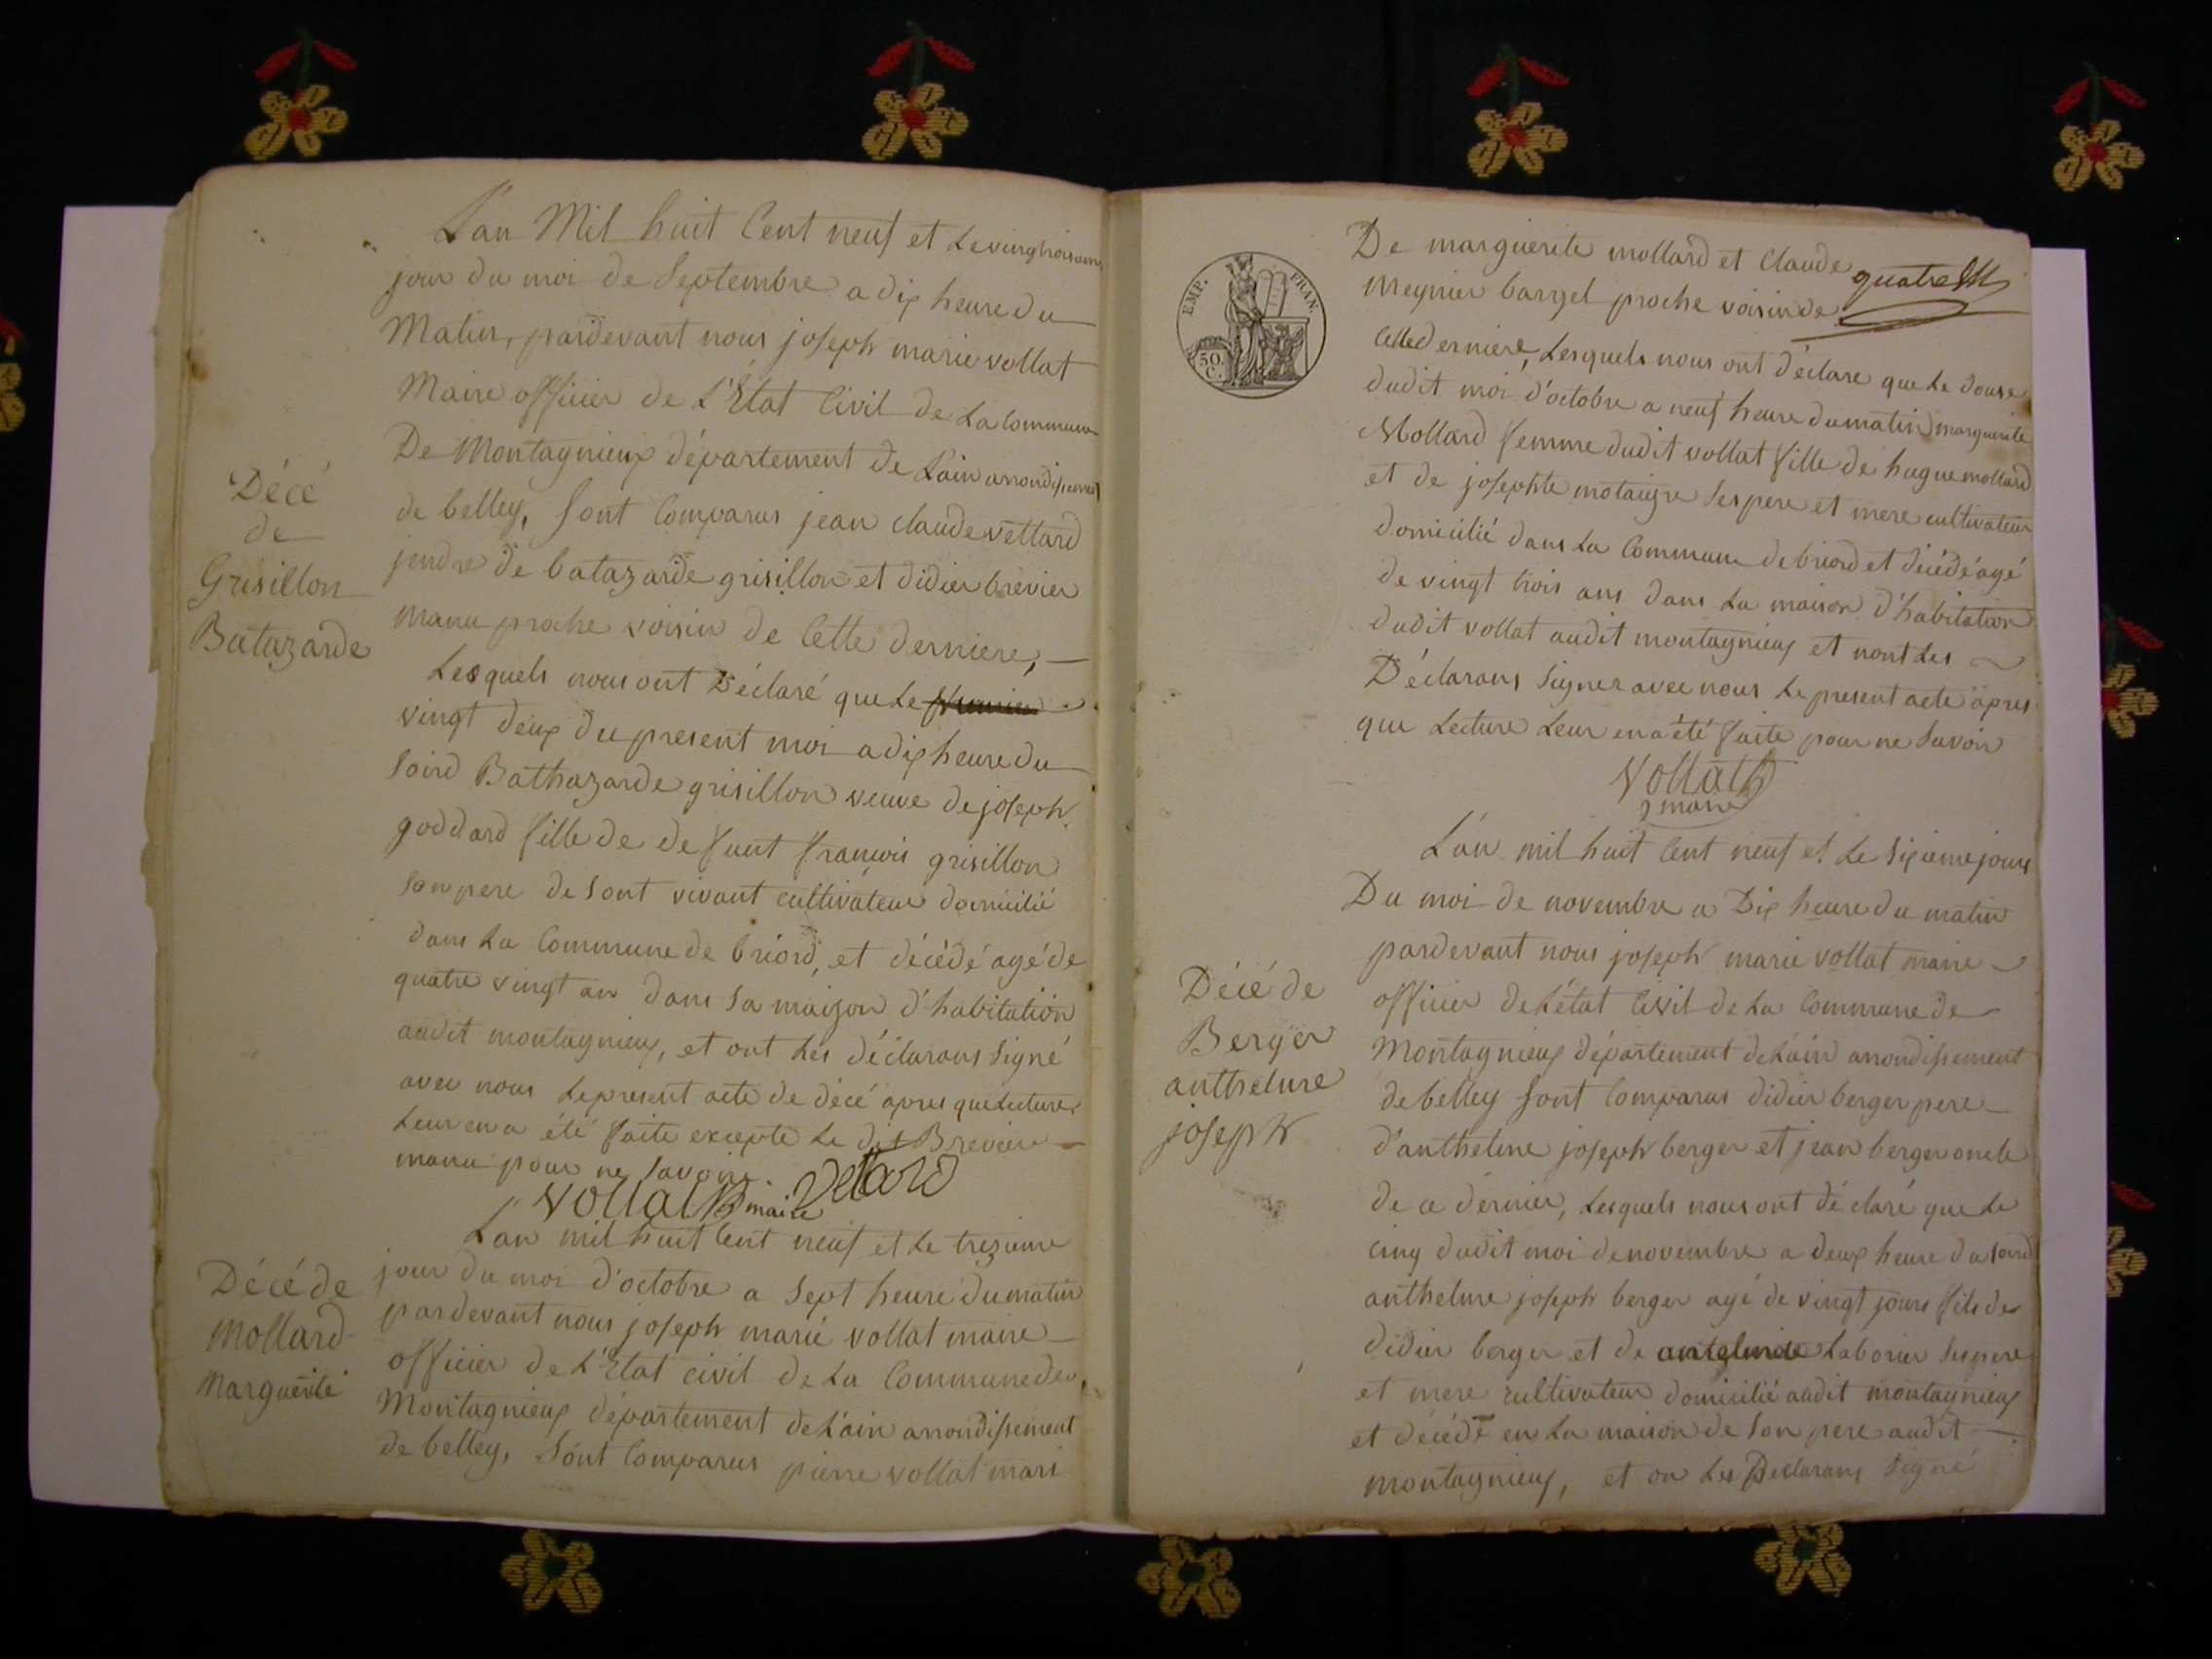 L'an Mil huit Cent neuf et Le vingtroisieme
jour du moi de Septembre a dix heure du
Matin, pardevant nous joseph marie vollat
Maire officier de L'Etat Civil de La Commune
De Montagnieux département de Lain arrondissement
de belley, Sont Comparus jean claude vettard
jendre de batazarde grisillon et didier brevier
manu proche voisin de Cette derniere,
Lesquels nous ont Déclaré que Le premier
vingt deux du present moi a dix heure du
Soird Bathazarde grisillon veuve de joseph
goddard fille de defunt françois grisillon
son pere de sont vivant cultivateur domicilié
dans La Commune de briord, et décédé agé de
quatre vingt an dans sa maizon d'habitation
audit montagnieux, et ont Les déclarans Signé
avec nous Le present acte de décé apres que Lecture
Leur en a été faite excepte Le dit Brevier
manu pour ne Savoire
Vollat maire Vetard
Décé
de
Grisillon
Batazarde
L'an mil huit Cent neuf et Le trezieme
jour du moi d'octobre a Sept heure du matin
pardevant nous joseph marie vollat maire
officier de L'Etat civil de La Commune de
Montagnieux département de L'ain arrondissement
de belley, Sont Comparus pierre vollat mari
Décé de
Mollard
Marguerite
EMP. FRAN.
50.
C.
quatre
De marguerite mollard et Claude
Meynier bargel proche voisin de
Cette derniere, Lesquels nous ont déclare que Le douse
dudit moi d'octobre a neuf heure du matin marguerite
Mollard femme dudit vollat fille de hugue mollard
et de josephte motaigre Ses pere et mere cultivateur
domicilié dans La Commune de briord et décédé agé
de vingt trois ans dans La maison d'habitation
dudit vollat audit montagnieux et nont Les
Déclarans Signer avec nous Le present acte apres
que Lecture Leur en a été faite pour ne Savoir
Vollat
maire
L'an mil huit Cent neuf et Le Sixieme jour
Du moi de novembre a Dix heure du matin
pardevant nous joseph marie vollat maire
officier de L'état Civil de La Commune de
Montagnieux département de L'ain arrondissement
de belley Sont Comparus didier berger pere
d'anthelme joseph berger et jean berger oncle
de ce dernier, Lesquels nous ont déclaré que Le
cinq dudit moi de novembre a deux heure du soird
anthelme joseph berger agé de vingt jours fils de
didier berger et de Laborier Ses pere
et mere cultivateur domicilié audit montagnieux
et décédé en La maison de Son pere audit
montagnieux, et on Les Declarans Signé
Décé de
Berger
anthelme
joseph